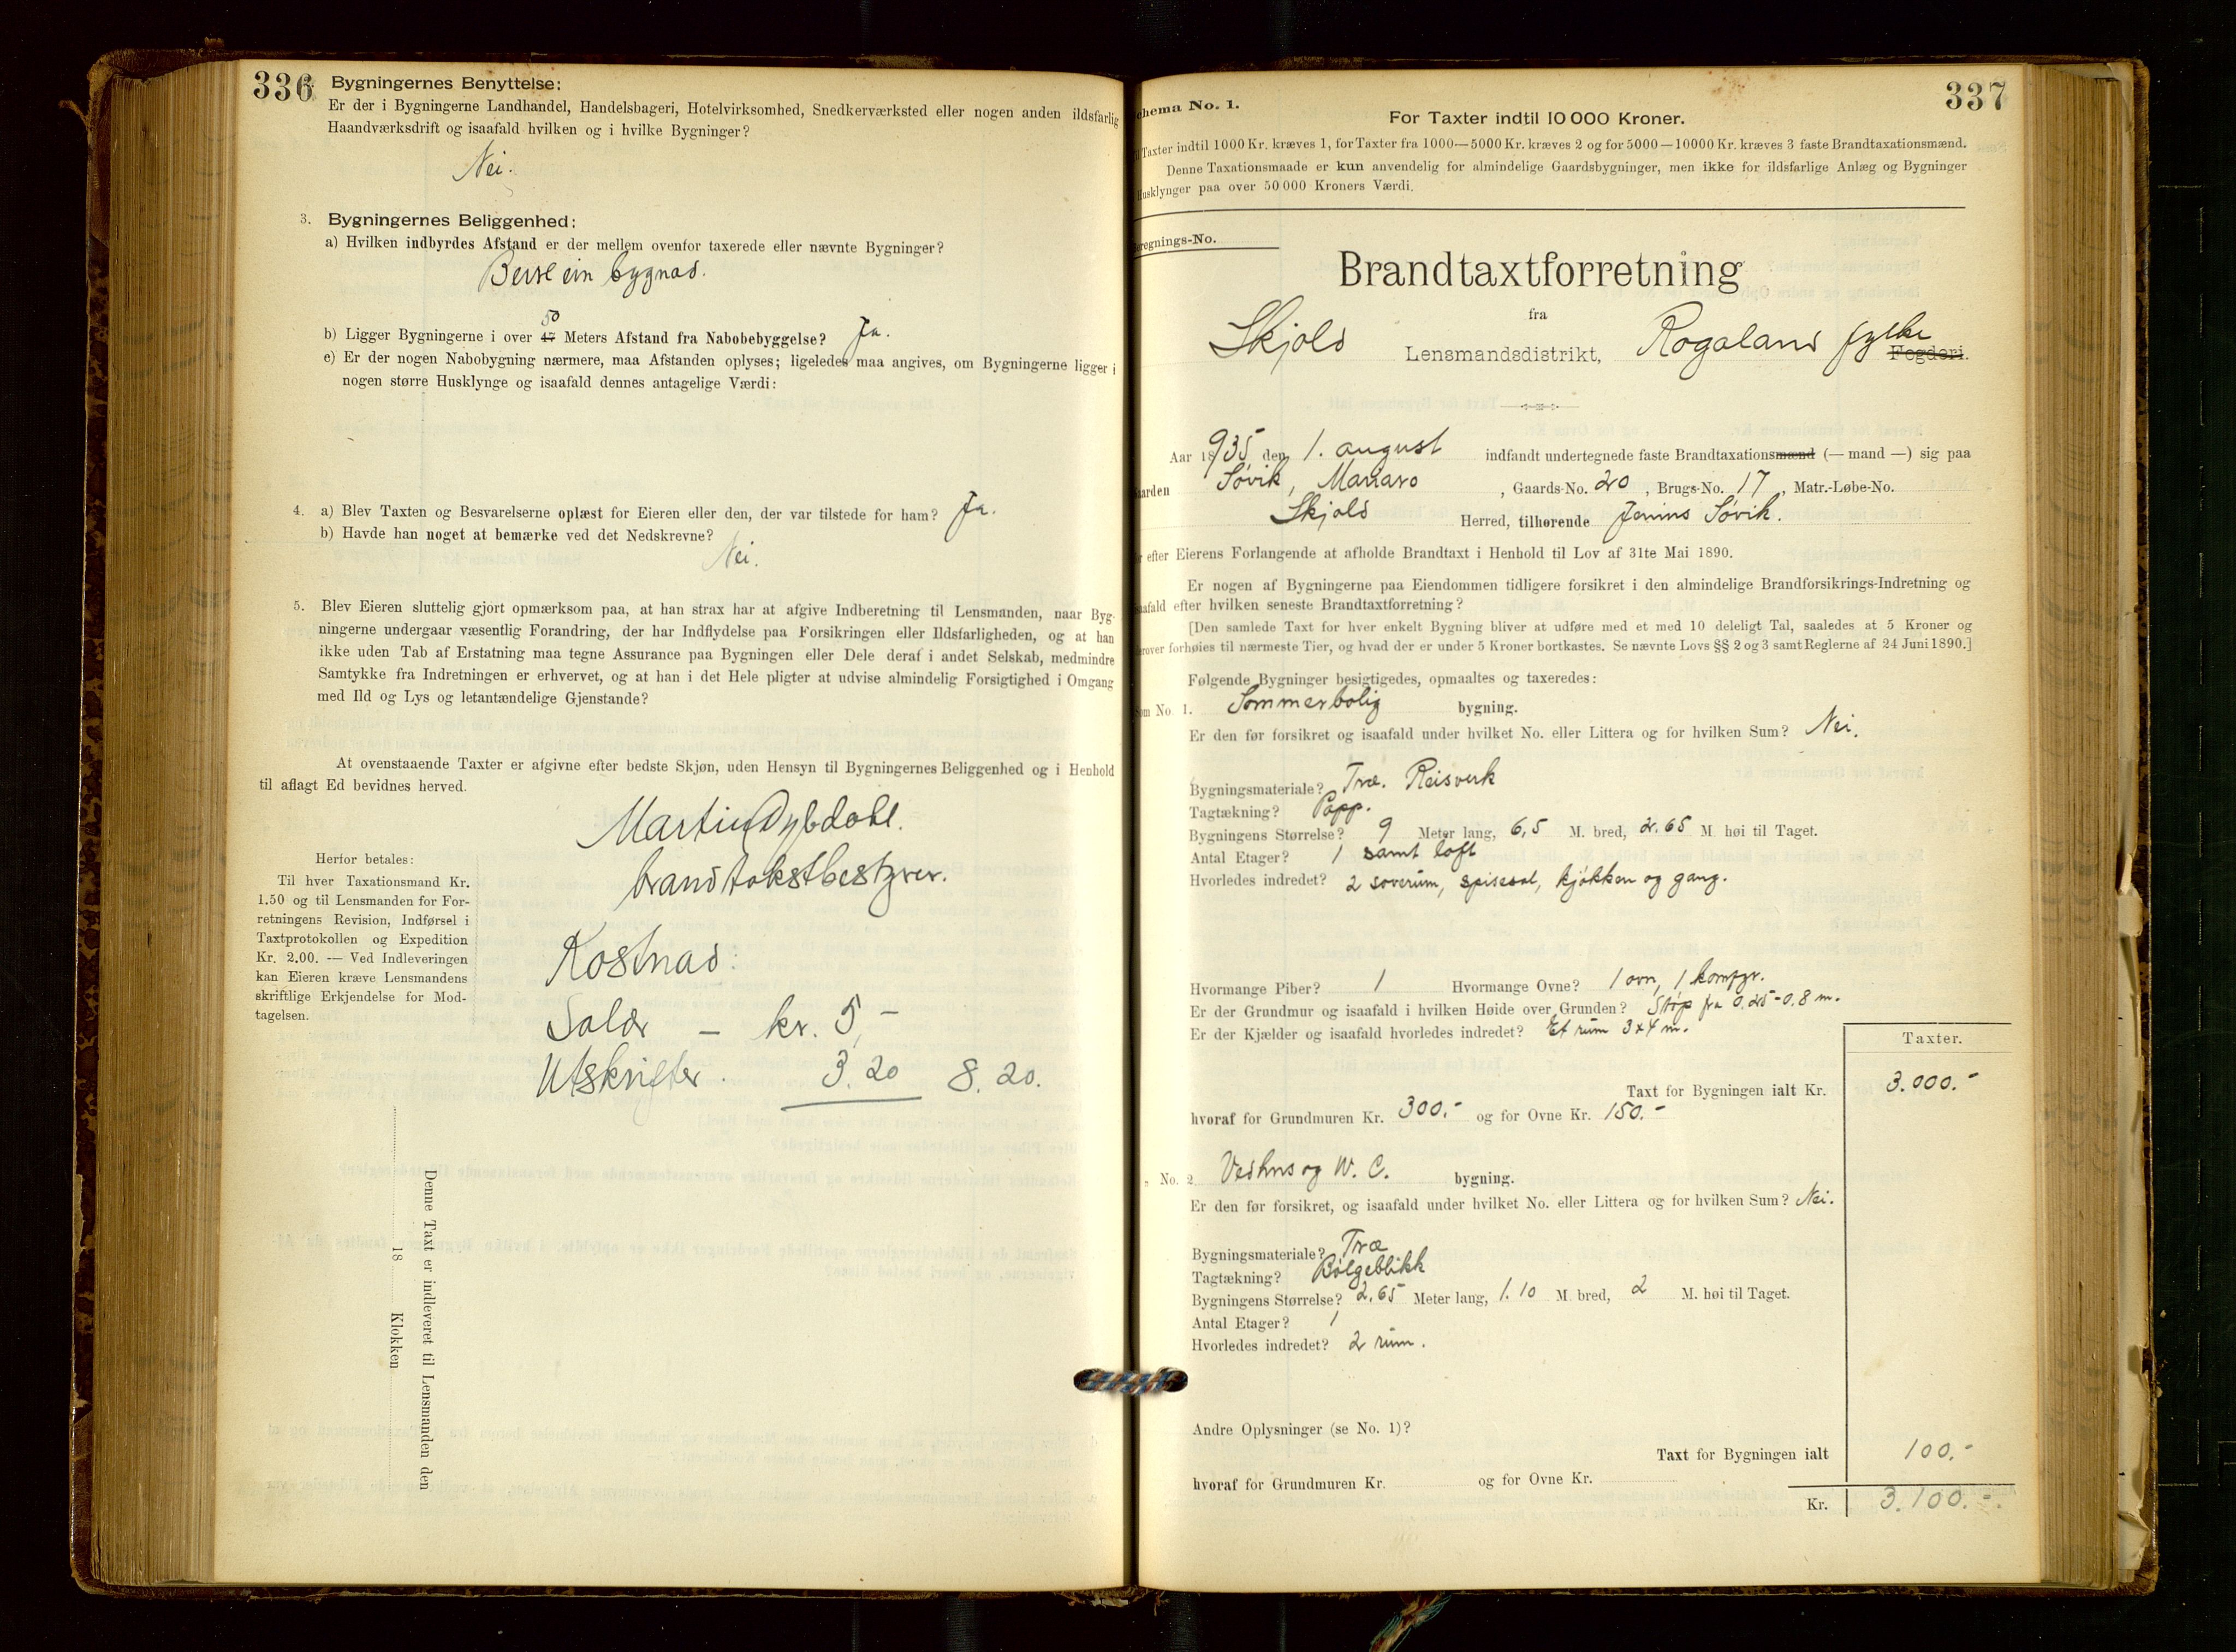 336
Bygningernes Benyttelse:
Er der i Bygningerne Landhandel, Handelsbageri, Hotelvirksomhed, Snedkerværksted eller nogen anden ildsfarlig
Haandværksdrift og isaafald hvilken og i hvilke Bygninger?
Nei.
3. Bygningernes Beliggenhed:
a) Hvilken indbyrdes Afstand er der mellem ovenfor taxerede eller nævnte Bygninger?
Berre ein bygnad.
50
b) Ligger Bygningerne i over 47 Meters Afstand fra Nabobebyggelse? Ja.
c) Er der nogen Nabobygning nærmere, maa Afstanden oplyses; ligeledes maa angives, om Bygningerne ligger i
nogen større Husklynge og isaafald dennes antagelige Værdi:
4. a) Blev Taxten og Besvarelserne oplæst for Eieren eller den, der var tilstede for ham? Ja.
b) Havde han noget at bemærke ved det Nedskrevne?
Nei.
5. Blev Eieren sluttelig gjort opmærksom paa, at han strax har at afgive Indberetning til Lensmanden, naar Byg-
ningerne undergaar væsentlig Forandring, der har Indflydelse paa Forsikringen eller Ildsfarligheden, og at han
ikke uden Tab af Erstatning maa tegne Assurance paa Bygningen eller Dele deraf i andet Selskab, medmindre
Samtykke fra Indretningen er erhvervet, og at han i det Hele pligter at udvise almindelig Forsigtighed i Omgang
med Ild og Lys og letantændelige Gjenstande?
At ovenstaaende Taxter er afgivne efter bedste Skjøn, uden Hensyn til Bygningernes Beliggenhed og i Henhold
til aflagt Ed bevidnes herved.
Martin Dybdahl.
brandtakstbestyrer.
Herfor betales:
Til hver Taxationsmand Kr.
1.50 og til Lensmanden for For-
retningens Revision, Indførsel i
Taxtprotokollen og Expedition
Kr. 2.00. — Ved Indleveringen
kan Eieren kræve Lensmandens
skriftlige Erkjendelse for Mod-
tagelsen.
Kostnad:
Salær — kr. 5,-
Utskrifter. 3.20 8.20.
Denne Taxt er indleveret til Lensmanden den
18 Klokken
337
chema No. 1.
For Taxter indtil 10 000 Kroner.
Taxter indtil 1000 Kr. kræves 1, for Taxter fra 1000—5000 Kr. kræves 2 og for 5000—10000 Kr. kræves 3 faste Brandtaxationsmænd.
Denne Taxationsmaade er kun anvendelig for almindelige Gaardsbygninger, men ikke for ildsfarlige Anlæg og Bygninger
Husklynger paa over 50 000 Kroners Værdi.
eregnings-No.
Brandtaxtforretning
fra
Skjold Lensmandsdistrikt, Rogaland fylke Fogderi.
Aar 1935 den 1. august indfandt undertegnede faste Brandtaxationsmænd (— mand —) sig paa
aarden Søvik, , Gaards-No. 20, Brugs-No. 17, Matr.-Løbe-No.
Skjold Herred, tilhørende Søvik.
efter Eierens Forlangende at afholde Brandtaxt i Henhold til Lov af 31te Mai 1890.
Er nogen af Bygningerne paa Eiendommen tidligere forsikret i den almindelige Brandforsikrings-Indretning og
saafald efter hvilken seneste Brandtaxtforretning?
[Den samlede Taxt for hver enkelt Bygning bliver at udføre med et med 10 deleligt Tal, saaledes at 5 Kroner og
erover forhøies til nærmeste Tier, og hvad der er under 5 Kroner bortkastes. Se nævnte Lovs §§ 2 og 3 samt Reglerne af 24 Juni 1890.]
Følgende Bygninger besigtigedes, opmaaltes og taxeredes:
om No. 1. Sommerbolig bygning.
Er den før forsikret og isaafald under hvilket No. eller Littera og for hvilken Sum? Nei.
Bygningsmateriale? Træ. Reisverk
Tagtækning? Papp.
Bygningens Størrelse? 9 Meter lang, 6,5 M. bred, 2.65 M. høi til Taget.
Antal Etager? 1 samt loft
Hvorledes indredet? 2 soverum, spisesal, kjøkken og gang.
Hvormange Piber? 1 Hvormange Ovne? 1 ovn, 1 komfyr.
Er der Grundmur og isaafald i hvilken Høide over Grunden? Støp fra 0.25-0.8 m.
Er der Kjælder og isaafald hvorledes indredet? Et rum 3x4 m.
Taxter.
Taxt for Bygningen ialt Kr. 3.000.-
hvoraf for Grundmuren Kr. 300.- og for Ovne Kr. 150.-
" No. 2 Vedhus og W. C. bygning.
Er den før forsikret, og isaafald under hvilket No. eller Littera og for hvilken Sum? Nei.
Bygningsmateriale? Træ
Tagtækning? Bølgeblikk
Bygningens Størrelse? 2,65 Meter lang, 1.10 M. bred, 2 M. høi til Taget.
Antal Etager? 1
Hvorledes indredet? 2 rum.
Andre Oplysninger (se No. 1)?
Taxt for Bygningen ialt 100.-
hvoraf for Grundmuren Kr. og for Ovne Kr.
Kr. 3.100.-